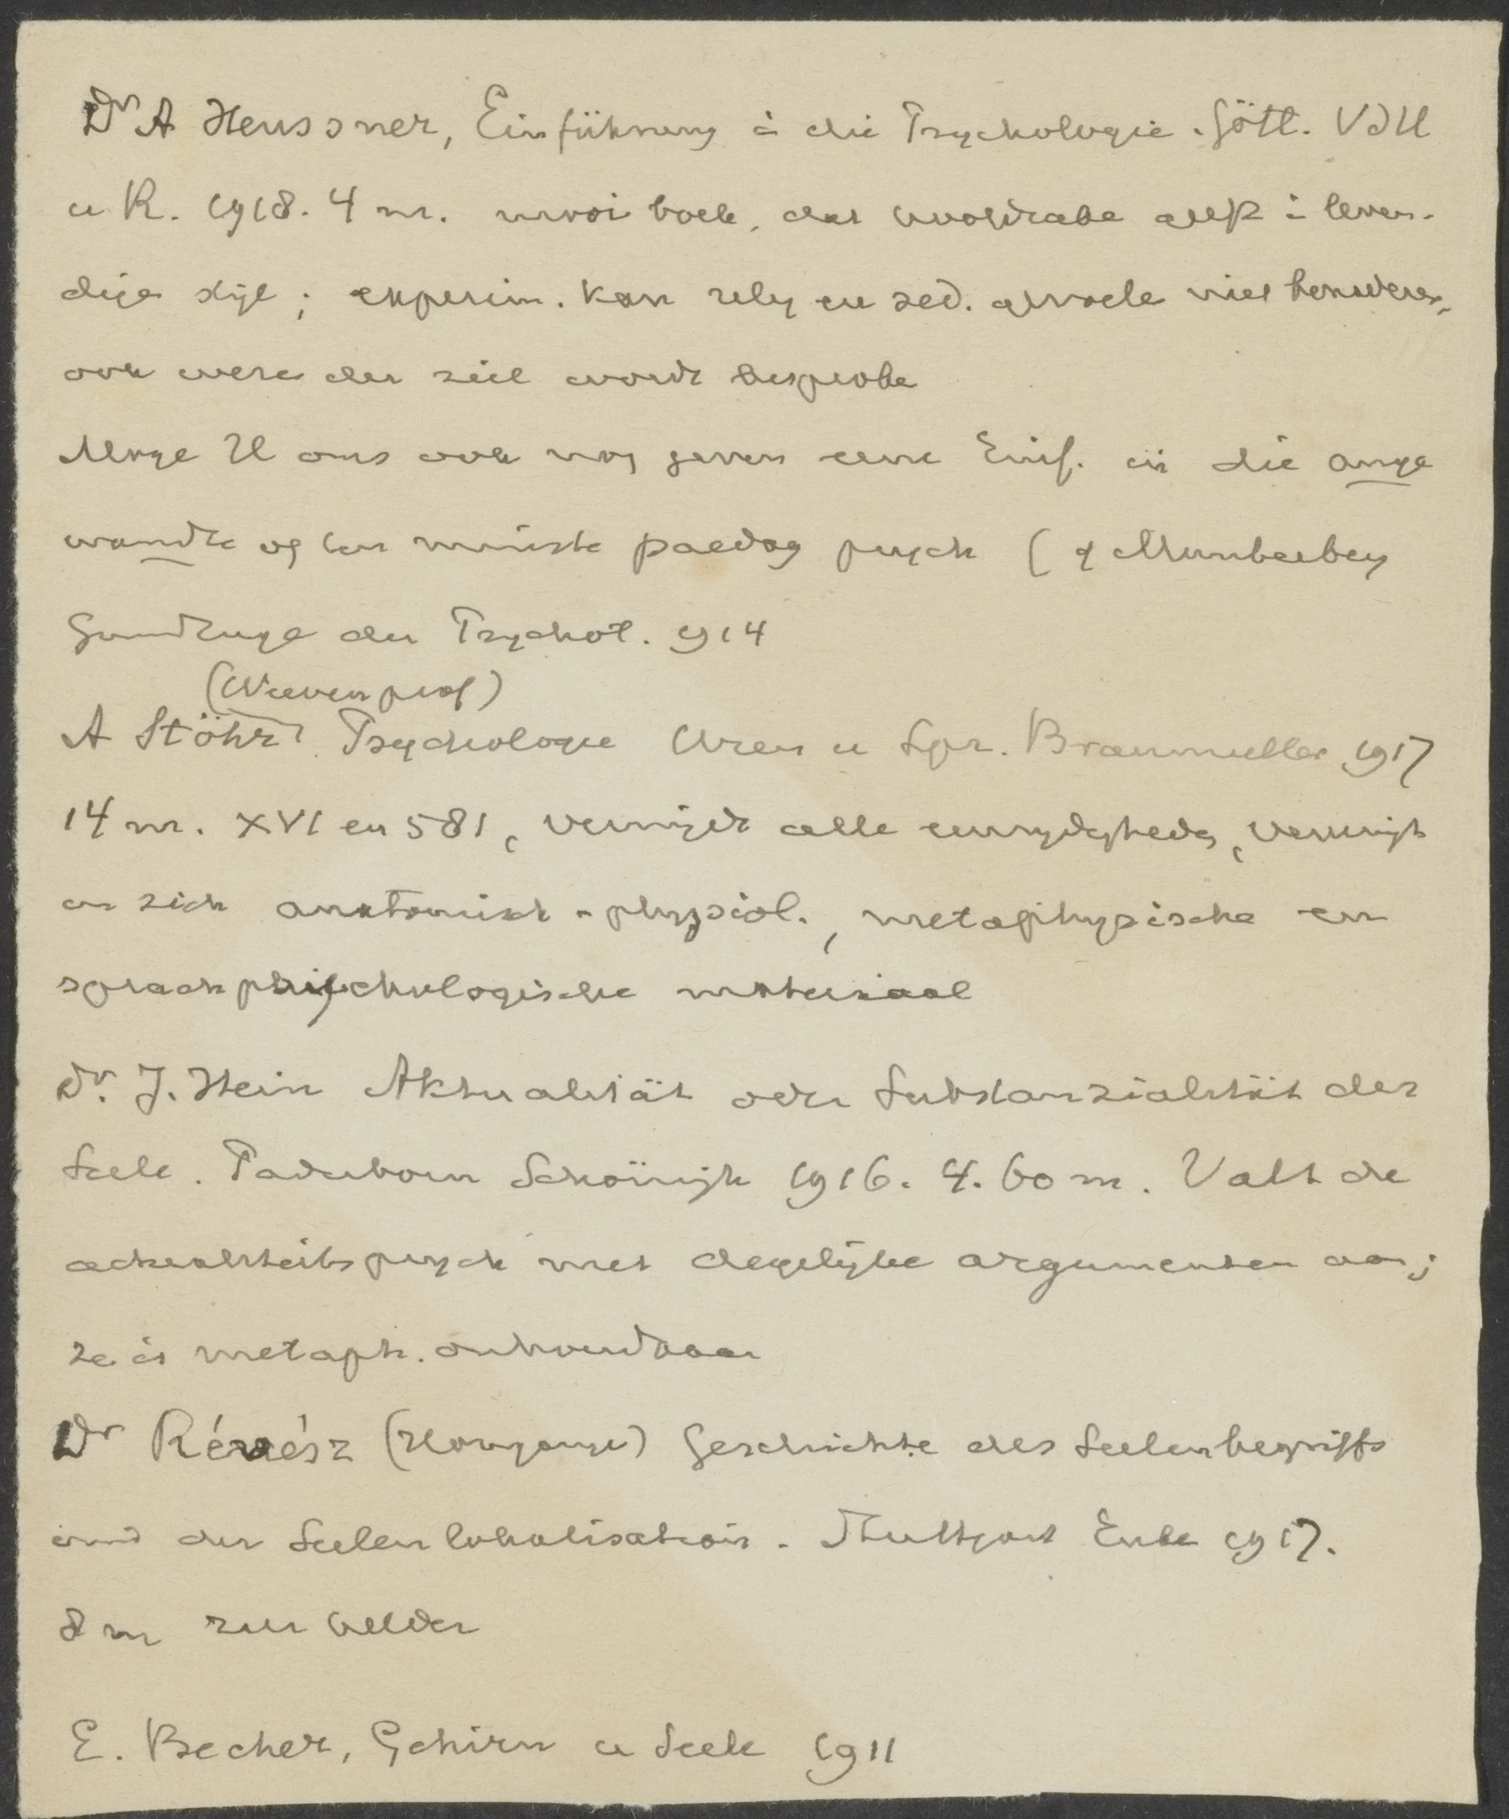 Dr A Heussner, Einführung i die Psychologie. Gött. VdH
u R. 1918. 4 m. mooi boek, dat alles i leven-
dige stijl; experim. kan relig en zed. niet benaderen,
ook wezen der ziel wordt besproke
Moge H ons ook nog geven eene Einf. in die ange
wandte of ten minste paedag psych (cf Munsterberg
Grundzuge der Psychot. 1914
(Weenen prof)
A Stöhr, Psychologie Wien u Lpz. Braumuller 1917
14 m. XVI en 581, vermijdt alle eenzydigheden, vereenigt
in zich anatomisch-physiol., metaphysische en
sprachpsychologische materiaal
Dr. J. Hein Aktualität oder Substanzialität der
Seele. Paderborn Schöningh 1916. 4.60 m. Valt de
actualiteitspsych met degelijke argumenten aan;
ze is metaph. onhoudbaar
Dr Révész (Hongarije) Geschichte des Seelenbegriffs
und der Seelenlokalisation. Stuttgart Enke 1917.
8 m zeer helder
E. Becher, Gehirn u Seele 1911